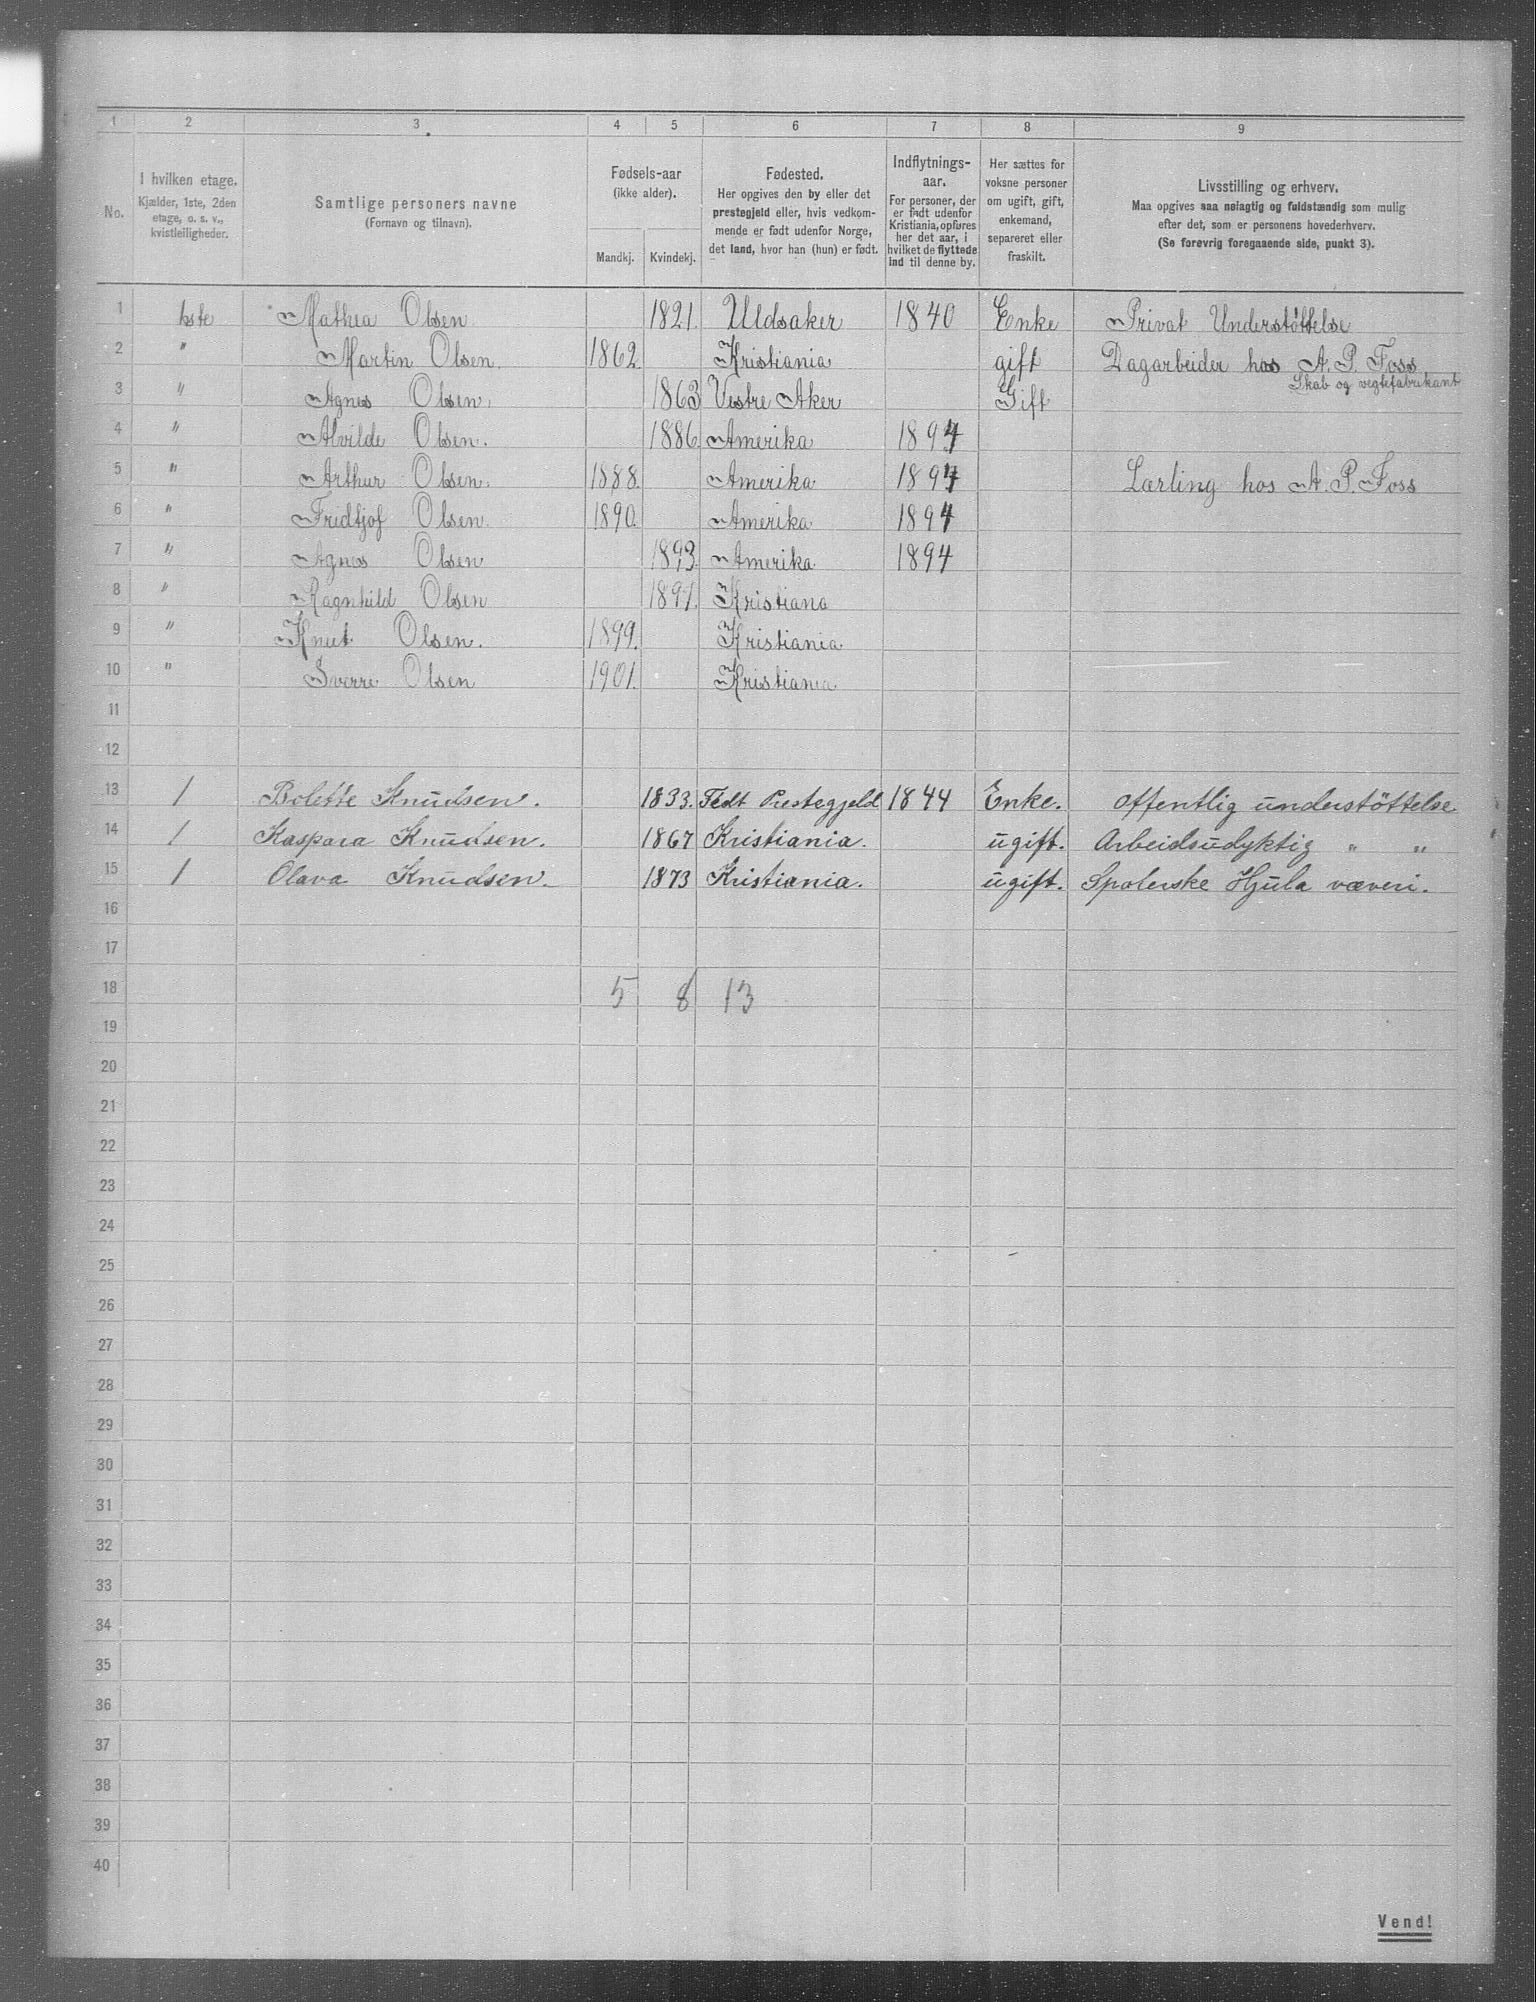 1 2 3 4 5 6 7 8 9
No. I hvilken etage. Kjælder, 1ste, 2den etage, o. s. v., kvistleiligheder. Samtlige personers navne (Fornavn og tilnavn). Fødsels-aar (ikke alder). Mandkj. Kvindekj. Fødested. Her opgives den by eller det prestegjeld eller, hvis vedkommende er født udenfor Norge, det land, hvor han (hun) er født. Indflytnings-aar. For personer, der er født udenfor Kristiania, opføres her det aar, i hvilket de flyttede ind til denne by. Her sættes for voksne personer om ugift, gift, enkemand, separeret eller fraskilt. Livsstilling og erhverv. Maa opgives saa nøiagtig og fuldstændig som mulig efter det, som er personens hovederhverv. (Se forøvrig foregaaende side, punkt 3).
1 1ste Mathea Olsen 1821. Uldsaker 1840 Enke Privat Understöttelse
2 " Martin Olsen. 1862. Kristiania gift Dagarbeider hos A. P. Foss
Skab og vegtefabrikant
3 " Agnes Olsen. 1863 Vestre Aker Gift
4 " Alvilde Olsen. 1886. Amerika 1894
5 " Arthur Olsen. 1888. Amerika 1894 Lærling hos A. P. Foss
6 " Fridtjof Olsen. 1890. Amerika 1894
7 " Agnes Olsen 1893. Amerika 1894
8 " Ragnhild Olsen Kristiana
9 " Knut Olsen. 1899. Kristiania
10 " Sverre Olsen 1901. Kristiania
11
12
13 1 Bolette Knudsen. 1833. Fedt Prestegjeld 1844 Enke. offentlig understöttelse
14 1 Kaspara Knudsen. 1867 Kristiania. ugift. Arbeidsudyktig " "
15 1 Olava Knudsen. 1873 Kristiania. ugift. Spolerske Hjula væveri.
16
17
18 5 8 13
19
20
21
22
23
24
25
26
27
28
29
30
31
32
33
34
35
36
37
38
39
40
Vend!